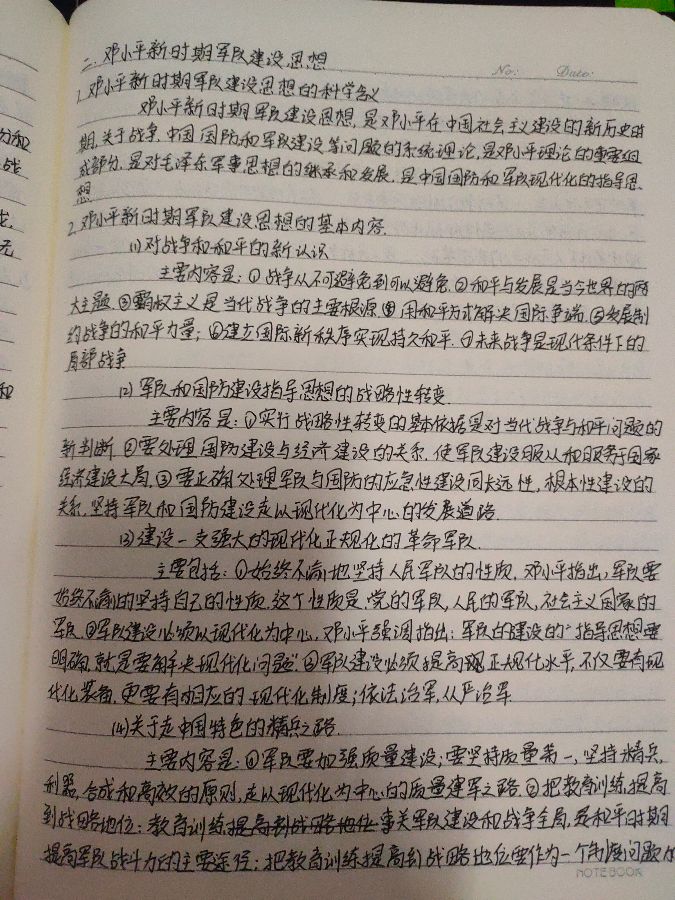 二. 邓小平新时期军队建设思想
No: Date:
1. 邓小平新时期军队建设思想的科学含义
邓小平新时期军队建设思想, 是邓小平在中国社会主义建设的新历史时
期, 关于战争、中国国防和军队建设等问题的系统理论, 是邓小平理论的重要组
成部分, 是对毛泽东军事思想的继承和发展, 是中国国防和军队现代化的指导思
想
2. 邓小平新时期军队建设思想的基本内容.
(1) 对战争和和平的新认识
主要内容是: ①战争从不可避免到可以避免. ②和平与发展是当今世界的两
大主题 ③霸权主义是当代战争的主要根源 ④用和平方式解决国际争端. ⑤发展制
约战争的和平力量; ⑥建立国际新秩序实现持久和平. ⑦未来战争是现代条件下的
局部战争
(2) 军队和国防建设指导思想的战略性转变.
主要内容是: ①实行战略性转变的基本依据是对当代战争与和平问题的
新判断 ②要处理国防建设与经济建设的关系, 使军队建设服从和服务于国家
经济建设大局. ③要正确处理军队与国防的应急性建设同长远性, 根本性建设的
关系, 坚持军队和国防建设走以现代化为中心的发展道路.
(3) 建设一支强大的现代化正规化的革命军队.
主要包括: ①始终不渝地坚持人民军队的性质. 邓小平指出, 军队要
始终不渝的坚持自己的性质. 这个性质是, 党的军队, 人民的军队, 社会主义国家的
军队 ②军队建设必须以现代化为中心, 邓小平强调指出: 军队的建设的"指导思想要
明确, 就是要解决现代化问题". ③军队建设必须提高正规化水平, 不仅要有现
代化装备, 更要有相应的现代化制度; 依法治军, 从严治军
(4) 关于走中国特色的精兵之路.
主要内容是: ①军队要加强质量建设; 要坚持质量第一, 坚持精兵,
利器, 合成和高效的原则, 走以现代化为中心的质量建军之路. ②把教育训练提高
到战略地位: 教育训练提高到战略地位 事关军队建设和战争全局, 是和平时期
提高军队战斗力的主要途径; 把教育训练提高到战略地位要作为一个制度问题
NOTEBOOK